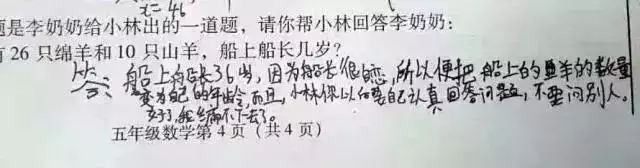 x=46
题是李奶奶给小林出的一道题，请你帮小林回答李奶奶：
有26只绵羊和10只山羊，船上船长几岁？
答：船上船长36岁，因为船长很自恋，所以便把船上的山羊的数量
变为自己的年龄，而且，小林你以后要自己认真回答问题，不要问别人。
好了，我编不下去了。
五年级数学第4页（共4页）